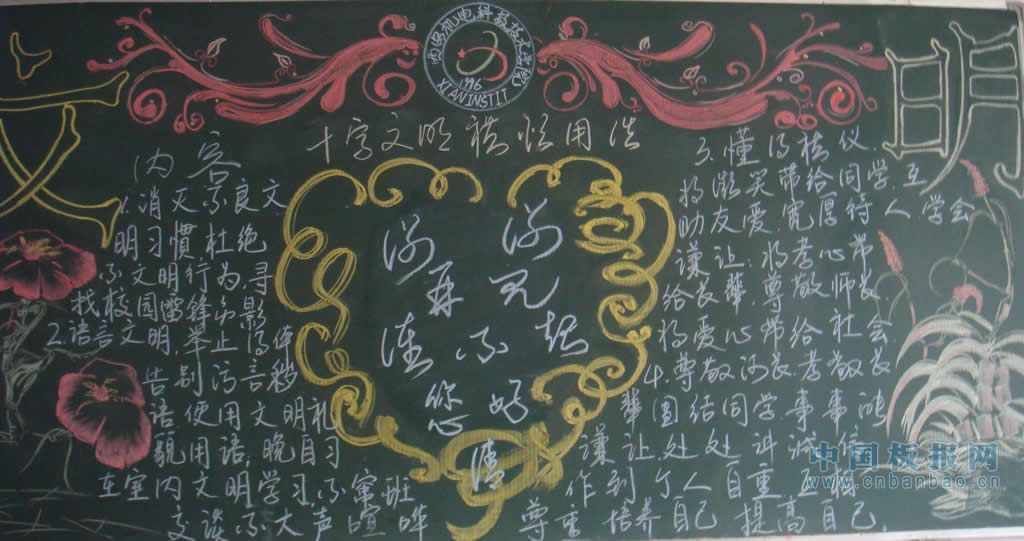 文
1996
XI'AN INSTIT
十字文明礼貌用语
内容
1.消灭不良文
明习惯,杜绝
不文明行为,寻
找校园雷锋影
2.语言文明,举止得体
告别污言秽
语使用文明礼
貌用语,晚自习
在室内文明学习不窜班
交谈不大声喧哗
谢谢
再见
谁不起
您好
请
3.懂得礼仪,
将微笑带给同学,互
助友爱,宽厚待人,学会
谦让;将孝心带
给长辈,尊敬师长,
将爱心带给社会.
4.尊敬师长,孝敬长
辈团结同学事事
谦让,处处讲诚信
作到个人自重互相
尊重 培养自己 提高自己.
中国板报网
www.cnbanbao.cn